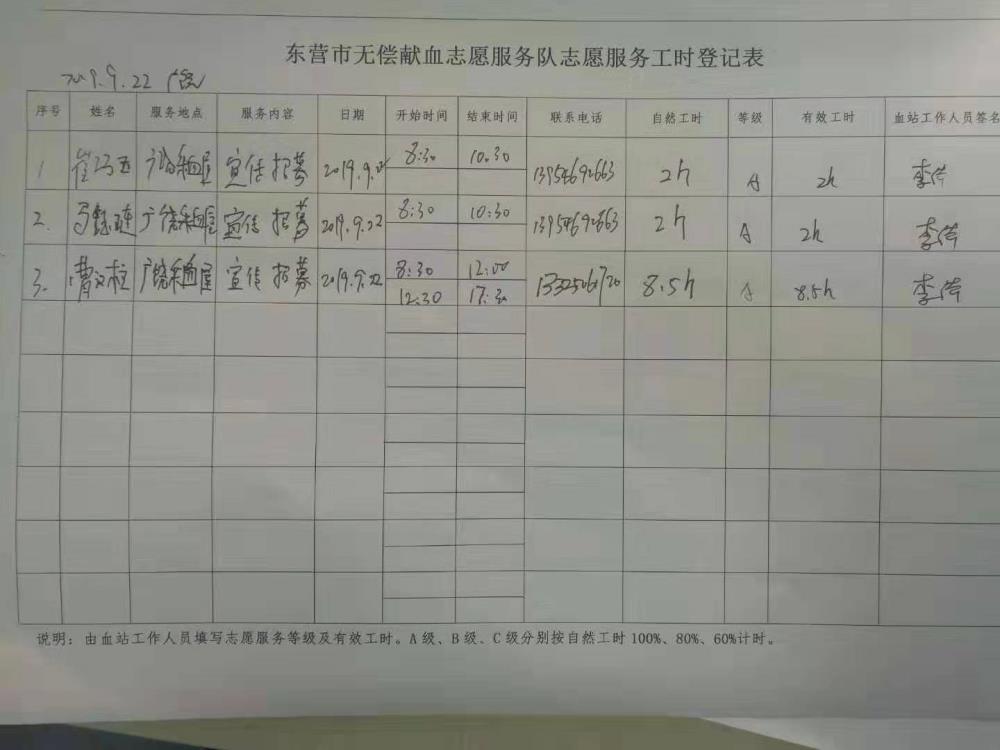 东营市无偿献血志愿服务队志愿服务工时登记表
2019.9.22 广饶
序号 姓名 服务地点 服务内容 日期 开始时间 结束时间 联系电话 自然工时 等级 有效工时 血站工作人员签名
1 崔 广饶采血屋 宣传招募 2019.9.22 8:30 10:30 2h A 2h 李
2. 广饶采血屋 宣传 招募 2019.9.22 8:30 10:30 2h A 2h 李
3. 曹文 广饶采血屋 宣传 招募 2019.9.22 8:30 12:00 8.5h A 8.5h 李
12:30 17:30
说明：由血站工作人员填写志愿服务等级及有效工时。A级、B级、C级分别按自然工时100%、80%、60%计时。